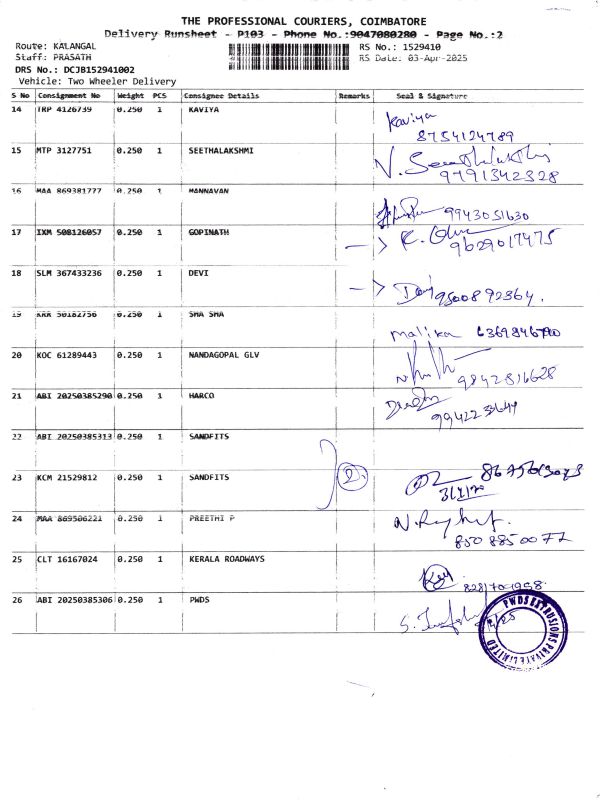 THE PROFESSIONAL COURIERS, COIMBATORE
Delivery Runsheet - P103 - Phone No.:9047080280 - Page No.:2
Route: KALANGAL RS No.: 1529410
Staff: PRASATH RS Date: 03-Apr-2025
DRS No.: DCJB152941002
Vehicle: Two Wheeler Delivery
S No Consignment No Weight PCS Consignee Details Remarks Seal & Signature
14 TRP 4126739 0.250 1 KAVIYA Kaviya
8754124789
15 MTP 3127751 0.250 1 SEETHALAKSHMI N. Seethalakshmi
9791342328
16 MAA 869381777 0.250 1 MANNAVAN
9943051630
17 IXM 508126057 0.250 1 GOPINATH
9629017475
18 SLM 367433236 0.250 1 DEVI Devi 9500892364.
19 KRR 50182756 0.250 1 SHA SHA
Malika 6369846790
20 KOC 61289443 0.250 1 NANDAGOPAL GLV
9842816628
21 ABI 20250385290 0.250 1 HARCO
22 ABI 20250385313 0.250 1 SANDFITS
23 KCM 21529812 0.250 1 SANDFITS 2
24 MAA 869506221 0.250 1 PREETHI P
8508850077
25 CLT 16167024 0.250 1 KERALA ROADWAYS
26 ABI 20250385306 0.250 1 PWDS
PWDS EXTRUSIONS PRIVATE LIMITED